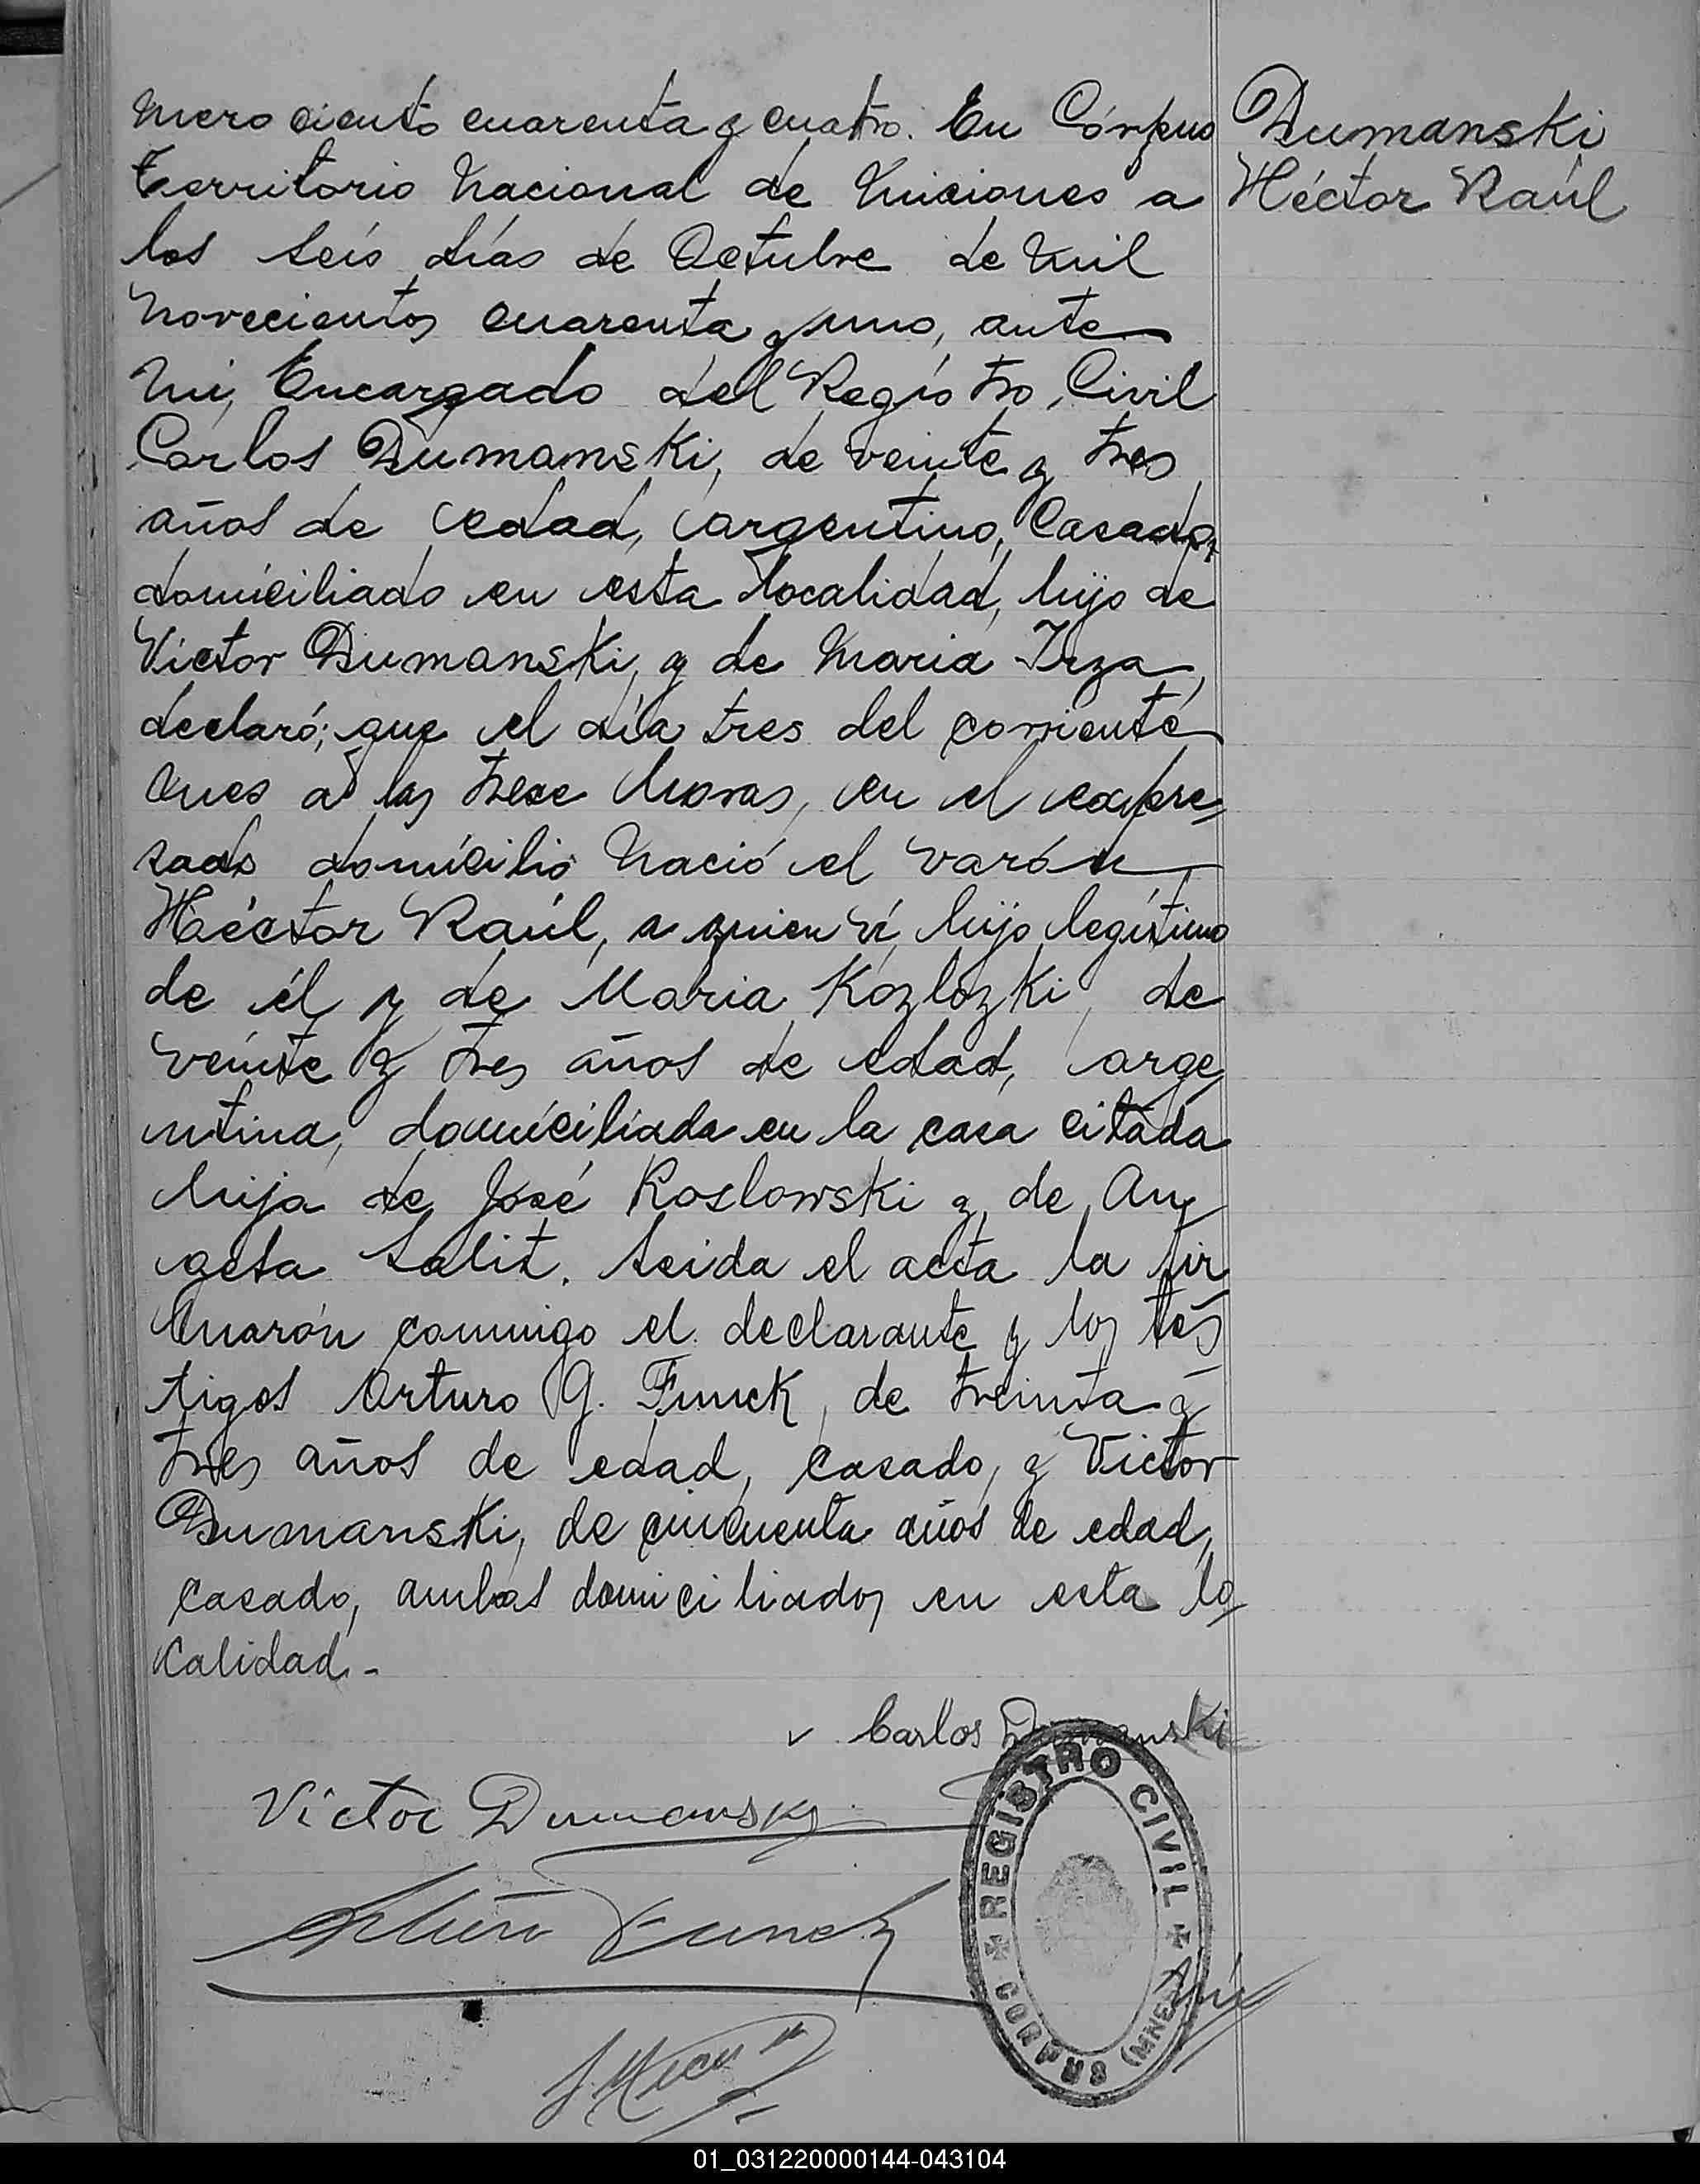 Número ciento cuarenta y cuatro. En Córpus
Territorio Nacional de Misiones a
los seis días de Octubre de mil
novecientos cuarenta y uno, ante
mí, Encargado del Registro, Civil
Cárlos Dumanski, de veinte y tres
años de edad, argentino, Casado,
domiciliado en esta localidad, hijo de
Victor Dumanski, y de Maria Irza,
declaró; que el día tres del corriente
mes a las trece horas, en el expre
sado domicilio nació el varón
Héctor Raúl, a quien ví, hijo legítimo
de él y de Maria Kozlozki, de
veinte y tres años de edad, arge
ntina, domiciliada en la casa citada
hija de José Koslowski y de An
geta Salit. Leida el acta la fir
maron conmigo el declarante y los tes
tigos Arturo G. Funck, de treinta y
tres años de edad, casado, y Victor
Dumanski, de cincuenta años de edad,
casado, ambos domiciliados en esta lo
calidad.-
Dumanski
Héctor Raúl
Carlos Dumanski
Victor Dumansky
Arturo Funck
REGISTRO CIVIL
CORPUS (MNES)
01_031220000144-043104